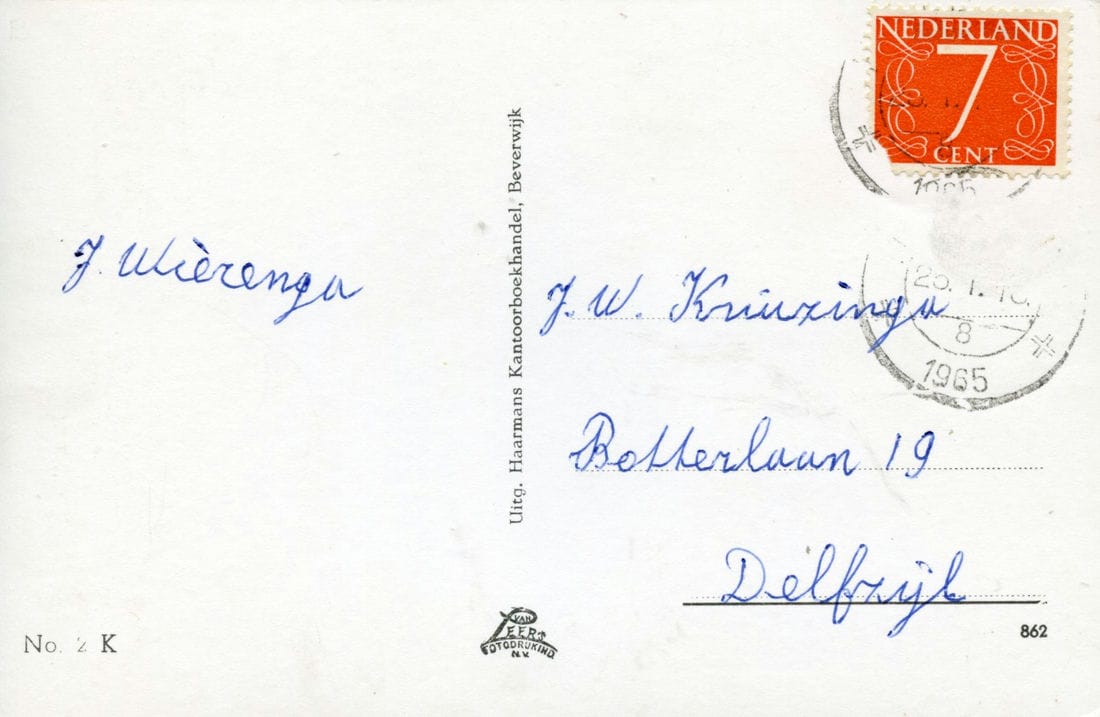 NEDERLAND
7
CENT
1965
J. Wièrenga
Uitg. Haarmans Kantoorboekhandel, Beverwijk
J. W. Kruizinga
8
1965
Botterlaan 19
Delfzijl
No. 2 K
VAN
LEER'S
FOTODRUKIND.
N.V.
862